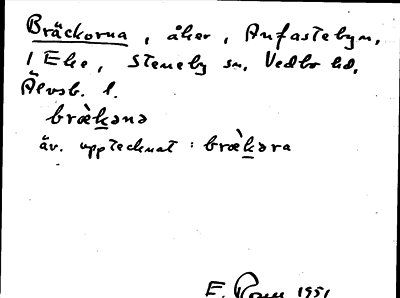 Bräckorna, åker, Anfastebyn,
1 Eke, Steneby sn, Vedbo hd,
Älvsb. l.
bræ̀kənə
äv. upptecknat: bræ̀kəra
E. Rosén 1951